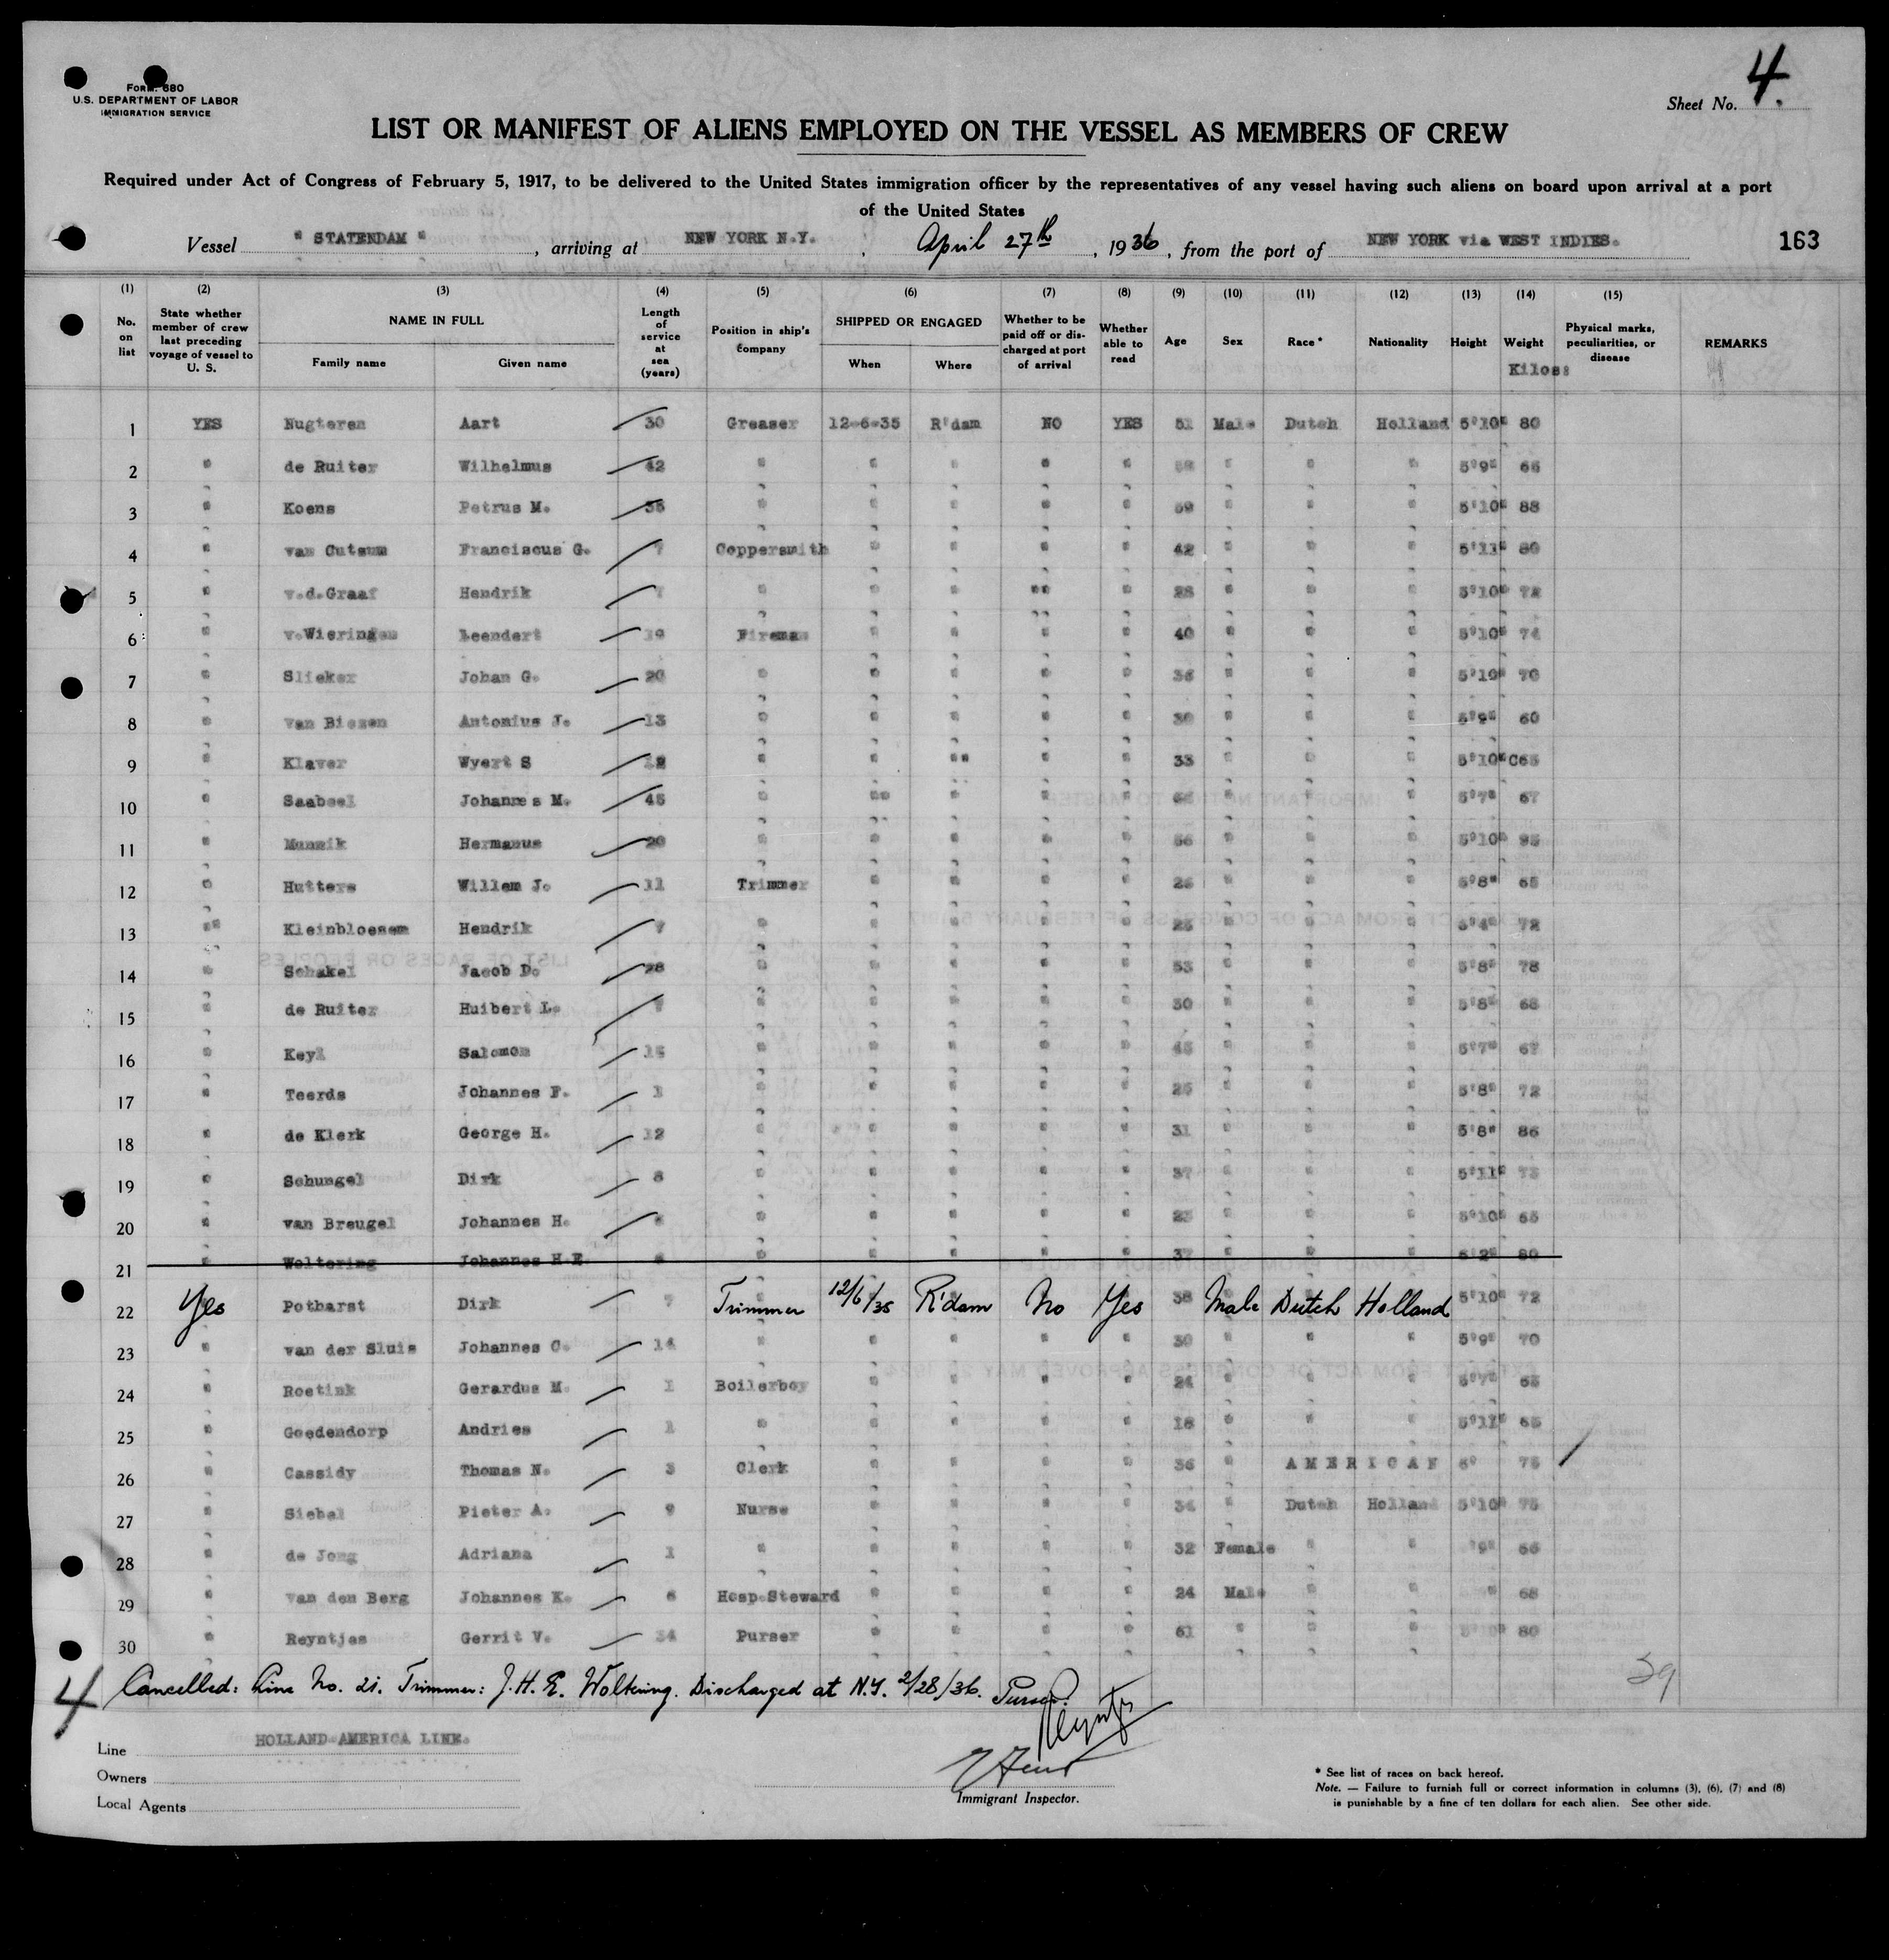 Form 680
U.S. DEPARTMENT OF LABOR
IMMIGRATION SERVICE
Sheet No. 4.
LIST OR MANIFEST OF ALIENS EMPLOYED ON THE VESSEL AS MEMBERS OF CREW
Required under Act of Congress of February 5, 1917, to be delivered to the United States immigration officer by the representatives of any vessel having such aliens on board upon arrival at a port
of the United States
Vessel " STATENDAM " , arriving at NEW YORK N.Y. , April 27th , 1936 , from the port of NEW YORK via WEST INDIES. 163
(1) (2) (3) (4) (5) (6) (7) (8) (9) (10) (11) (12) (13) (14) (15)
No. on list State whether member of crew last preceding voyage of vessel to U. S. NAME IN FULL Family name Given name Length of service at sea (years) Position in ship's company SHIPPED OR ENGAGED When Where Whether to be paid off or discharged at port of arrival Whether able to read Age Sex Race * Nationality Height Weight Kilos: Physical marks, peculiarities, or disease REMARKS
1 YES Nugteren Aart 30 Greaser 12-6-35 R'dam NO YES 51 Male Dutch Holland 5'10" 80
2 " de Ruiter Wilhelmus 42 " " " " " " " " 5'9"
3 " Koens Petrus M. " " " " " " " " 5'10" 88
4 " van Cutsum Franciscus G. 7 Coppersmith " " " " 42 " " " 5'11" 80
5 " v.d.Graaf Hendrik 7 " " " " " 28 " " " 5'10" 72
6 " v.Wieringen Leendert 19 Fireman " " " " 40 " " " 5'10" 74
7 " Slieker Johan G. 20 " " " " " 36 " " " 5'10" 70
8 " van Biezen Antonius J. 13 " " " " " 30 " " " 5'9" 60
9 " Klaver Wyert S 12 " " " " " 33 " " " 5'10" 65
10 " Saabeel Johannes M. 45 " " " " " " " " 5'7" 67
11 " Munnik Hermanus 20 " " " " " 56 " " " 5'10" 95
12 " Hutters Willem J. 11 Trimmer " " " " " " " 5'8" 65
13 " Kleinbloesem Hendrik 7 " " " " " 25 " " " 5'4" 72
14 " Schakel Jacob D. 28 " " " " " 53 " " " 5'8" 78
15 " de Ruiter Huibert L. " " " " " 30 " " " 5'8" 68
16 " Keyl Salomon " " " " " 45 " " " 5'7" 67
17 " Teerds Johannes F. 1 " " " " " " " " 5'8" 72
18 " de Klerk George H. 12 " " " " " 31 " " " 5'8" 86
19 " Schungel Dirk 8 " " " " " 37 " " " 5'11"
20 " van Breugel Johannes H. " " " " " 23 " " " 5'10" 65
21 " Woltering Johannes H.E. " " " " " 37 " " " 6'2" 80
22 Yes Potharst Dirk 7 Trimmer 12/6/35 R'dam No Yes 38 Male Dutch Holland 5'10" 72
23 " van der Sluis Johannes C. 14 " " " " " 30 " " " 5'9" 70
24 " Roetink Gerardus M. 1 Boilerboy " " " " 24 " " " 5'7"
25 " Goedendorp Andries 1 " " " " " 18 " " " 5'11" 65
26 " Cassidy Thomas N. 3 Clerk " " " " 36 " AMERICAN 6' 75
27 " Siebel Pieter A. 9 Nurse " " " " 34 " Dutch Holland 5'10" 75
28 " de Jong Adriana 1 " " " " " 32 Female " " '9" 66
29 " van den Berg Johannes K. 6 Hosp.Steward " " " " 24 Male " " " 68
30 " Reyntjes Gerrit V. 34 Purser " " " " 61 " " " 80
39
4 Cancelled: Line No. 21. Trimmer: J.H.E. Woltering. Discharged at N.Y. 2/28/36. Purser.
Reyntjes
Line HOLLAND-AMERICA LINE.
Owners
Local Agents
Immigrant Inspector.
* See list of races on back hereof.
Note. — Failure to furnish full or correct information in columns (3), (6), (7) and (8)
is punishable by a fine of ten dollars for each alien. See other side.